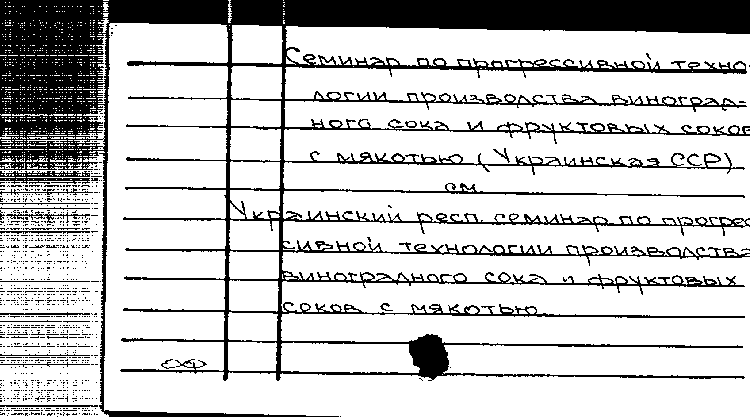 Семинар по прогрессивной техно-
логии производства виноград-
ного сока и фруктовых соков
с мякотью (Украинская ССР)
см.
Украинский респ. семинар по прогрес
сивной технологии производства
виноградного сока и фруктовых
соков с мякотью.